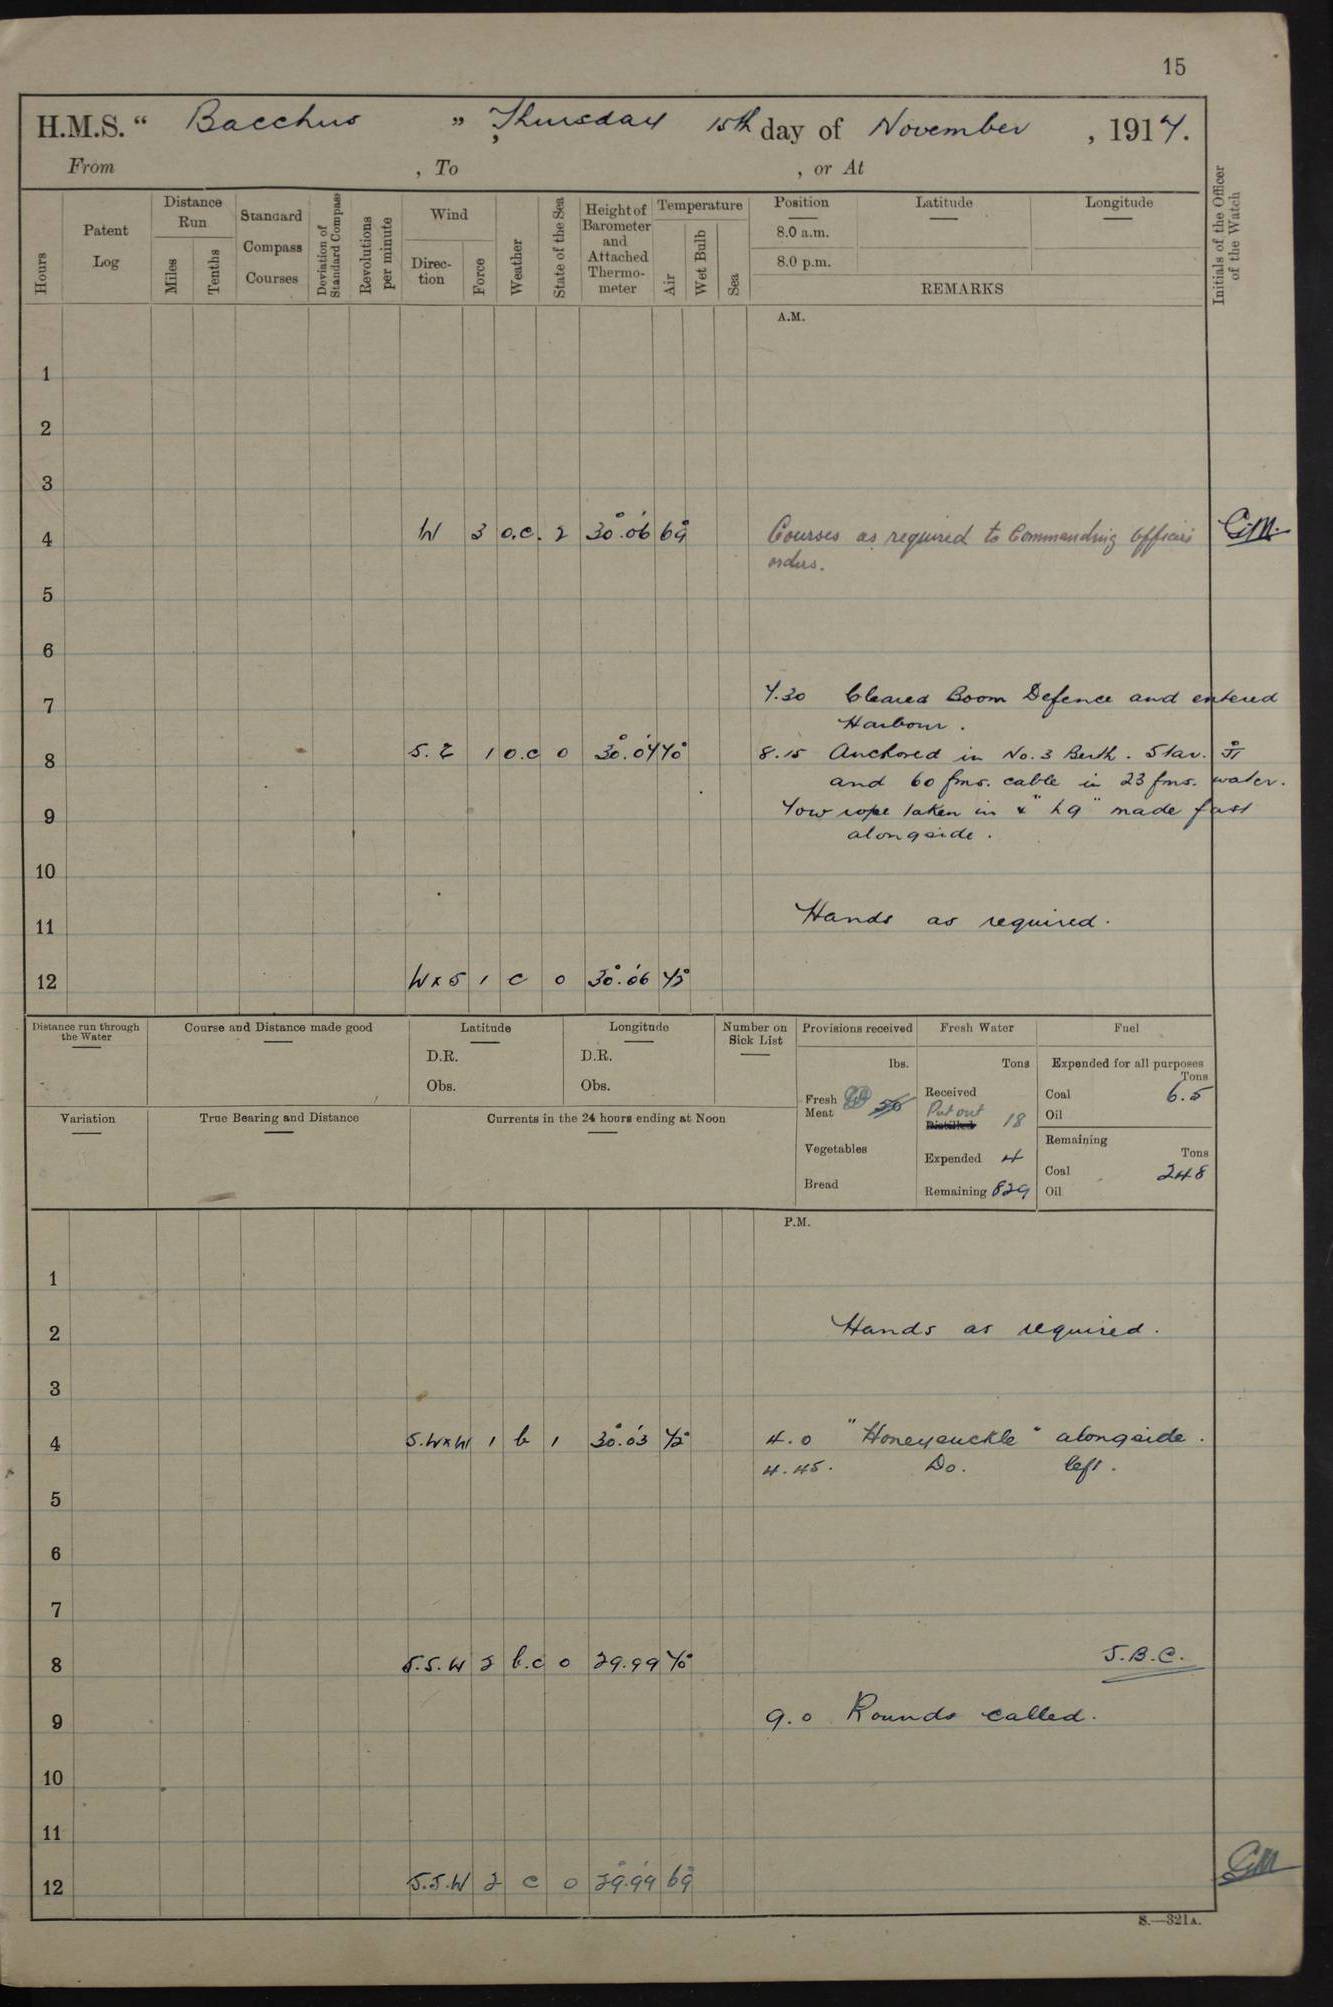 15
H.M.S. “ Bacchus ”, Thursday 15th day of November , 1917.
From , To , or At
Hours
Patent Log
Distance Run
Miles
Tenths
Standard Compass Courses
Deviation of Standard Compass
Revolutions per minute
Wind
Direc-tion
Force
Weather
State of the Sea
Height of Barometer and Attached Thermo-meter
Temperature
Air
Wet Bulb
Sea
Position
8.0 a.m.
8.0 p.m.
Latitude
Longitude
REMARKS
Initials of the Officer of the Watch
A.M.
1
2
3
4 W 3 o.c. 2 30.06 69 Courses as required to Commanding Officers
orders.
5
6
7 7.30 Cleared Boom Defence and entered
Harbour.
8 S.E 1 o.c 0 30.04 70 8.15 Anchored in No.3 Berth. Star.
and 60 fms. cable in 23 fms. water.
9 Tow rope taken in & "L9" made fast
alongside.
10
11 Hands as required.
12 W x S 1 c 0 30.06 72
Distance run through the Water
Course and Distance made good
Latitude
D.R.
Obs.
Longitude
D.R.
Obs.
Number on Sick List
Provisions received
lbs.
Fresh Meat 56
Vegetables
Bread
Fresh Water
Tons
Received
Put out 18
Distilled
Expended 4
Remaining 829
Fuel
Expended for all purposes
Tons
Coal 6.5
Oil
Remaining
Tons
Coal 248
Oil
Variation
True Bearing and Distance
Currents in the 24 hours ending at Noon
P.M.
1
2 Hands as required.
3
4 S.W x W 1 b 1 30.03 72 4.0 "Honeysuckle" alongside.
4.45. Do. left.
5
6
7
8 S.S.W 2 b.c 0 29.99 70 J.B.C.
9 9.0 Rounds called.
10
11
12 S.S.W 2 c 0 29.99 69 GM
S.—321A.